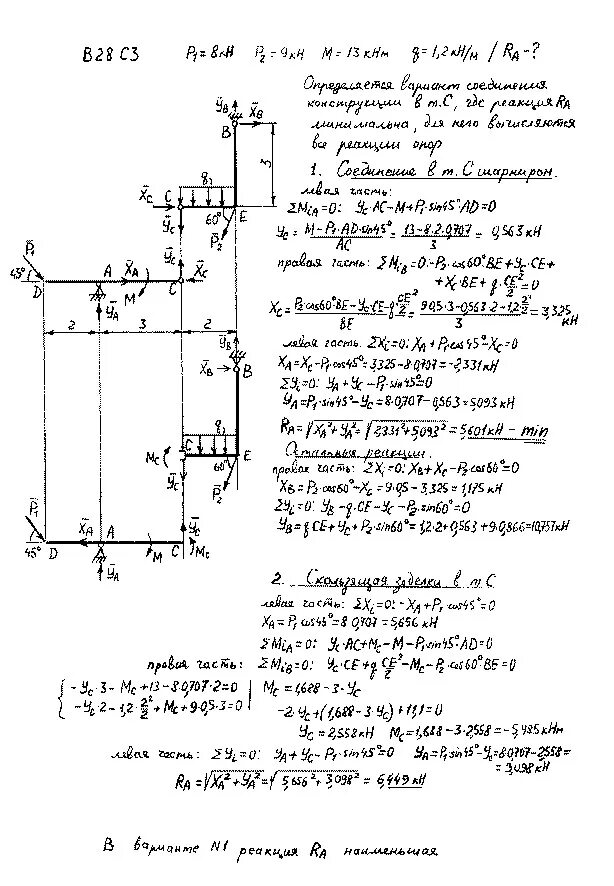 B28 C3 P₁=8кН P₂=9кН M=13кНм q=1,2кН/м / R_A-?
Определяется вариант соединения
конструкции в т.С, где реакция R_A
минимальна, для него вычисляются
все реакции опор
1. Соединение в т.С шарнирн.
левая часть:
ΣM_iA=0: Y_C·AC-M+P₁·sin45°·AD=0
Y_C = (M-P₁·AD·sin45°)/AC = (13-8·2·0,707)/3 = 0,563 кН
правая часть: ΣM_iB=0:-P₂·cos60°·BE+Y_C·CE+
+X_C·BE+q·CE²/2=0
X_C = (P₂cos60°·BE-Y_C·CE-q·CE²/2)/BE = (9·0,5·3-0,563·2-1,2·2²/2)/3 = 3,325
кН
левая часть. ΣX_i=0: X_A+P₁cos45°-X_C=0
X_A=X_C-P₁·cos45°=3,325-8·0,707=-2,331кН
ΣY_i=0: Y_A+Y_C-P₁·sin45°=0
Y_A=P₁·sin45°-Y_C=8·0,707-0,563=5,093 кН
R_A=√(X_A²+Y_A²)=√(2,331²+5,093²)=5,601 кН - min
Остальные реакции.
правая часть: ΣX_i=0: X_B+X_C-P₂cos60°=0
X_B=P₂·cos60°-X_C=9·0,5-3,325=1,175 кН
ΣY_i=0: Y_B-q·CE-Y_C-P₂·sin60°=0
Y_B=q·CE+Y_C+P₂·sin60°=1,2·2+0,563+9·0,866=10,757кН
2. Скользящая заделка в т С
левая часть: ΣX_i=0: -X_A+P₁cos45°=0
X_A=P₁cos45°=8·0,707=5,656 кН
ΣM_iA=0: Y_C·AC+M_C-M-P₁sin45°·AD=0
правая часть: ΣM_iB=0: Y_C·CE+q·CE²/2-M_C-P₂·cos60°BE=0
{ -Y_C·3-M_C+13-8·0,707·2=0 | M_C=1,688-3·Y_C
-Y_C·2-1,2·2²/2+M_C+9·0,5·3=0
-2·Y_C+(1,688-3·Y_C)+11,1=0
Y_C=2,558кН M_C=1,688-3·2,558=-5,985кНм
левая часть: ΣY_i=0: Y_A+Y_C-P₁·sin45°=0 Y_A=P₁sin45°-Y_C=8·0,707-2,558=
=3,098 кН
R_A=√(X_A²+Y_A²)=√(5,656²+3,098²)=6,449 кН
В варианте N1 реакция R_A наименьшая
Y_B
X_B
B
3
q
X_C
C
Y_C
60°
P₂
E
P₁
45°
D
A
X_A
M
Y_A
Y_C
C
X_C
2
3
2
Y_B
X_B
B
q
M_C
C
Y_C
60°
P₂
E
P₁
45°
D
X_A
A
M
Y_A
Y_C
C
M_C